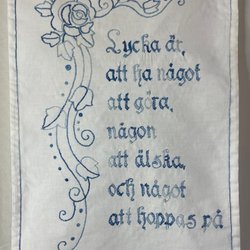 Lycka är,
att ha något
att göra,
någon
att älska,
och något
att hoppas på